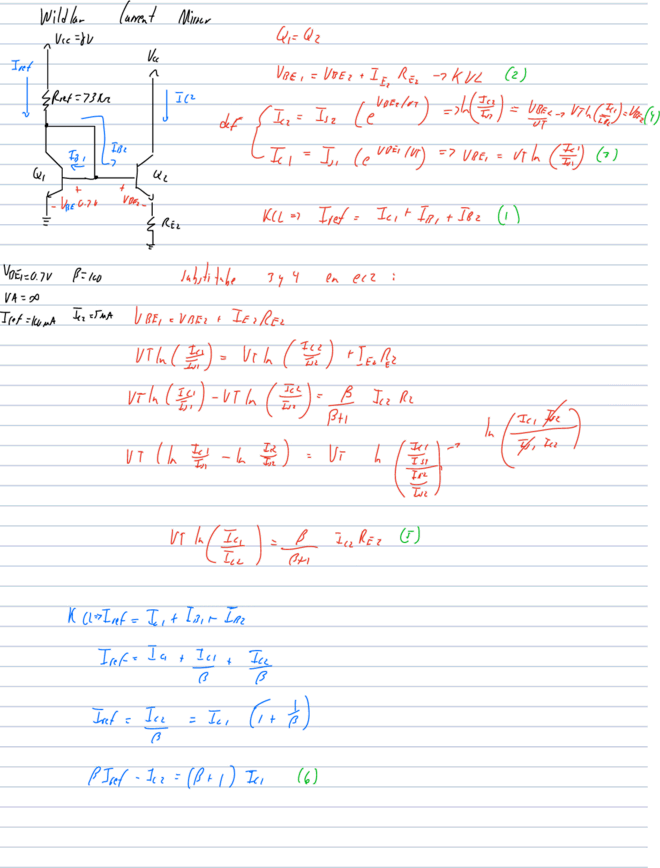 Widlar Current Mirror
Vcc=8V
Vcc
Iref
IC2
Rref=73kΩ
IB1
IB2
Q1
Q2
+ +
- VBE 0.7V VBE2 -
RE2
Q1=Q2
VBE1 = VBE2 + IE2 RE2 → KVL (2)
def { IC2 = IS2 (e^VBE2/VT) => ln(IC2/IS2) = VBE2/VT → VT ln(IC2/IS2) = VBE2 (4)
IC1 = IS1 (e^VBE1/VT) => VBE1 = VT ln(IC1/IS1) (3)
KCL => Iref = IC1 + IB1 + IB2 (1)
VBE1=0.7V β=100
VA=∞
IC2=5mA
substitube 3 y 4 en ec2 :
VBE1 = VBE2 + IE2 RE2
VT ln(IC1/IS1) = VT ln(IC2/IS2) + IE2 RE2
VT ln(IC1/IS1) - VT ln(IC2/IS2) = β/β+1 IC2 R2
VT (ln IC1/IS1 - ln IC2/IS2) = VT ln((IC1/IS1)/(IC2/IS2)) → ln(IC1 IS2/IS1 IC2)
VT ln(IC1/IC2) = β/β+1 IC2 RE2 (5)
KCL=> Iref = IC1 + IB1 + IB2
Iref = IC1 + IC1/β + IC2/β
Iref = IC2/β = IC1 (1 + 1/β)
β Iref - IC2 = (β+1) IC1 (6)